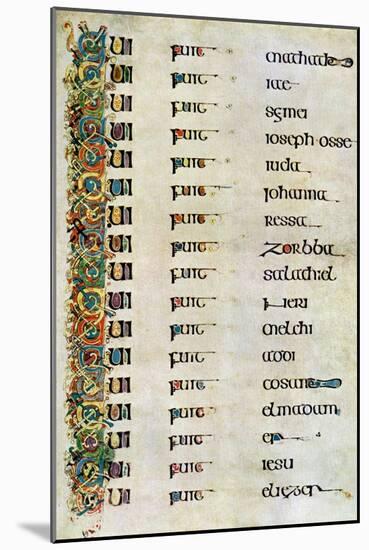 Qui fuit mathath
Qui fuit iae
Qui fuit semei
Qui fuit ioseph osse
Qui fuit iuda
Qui fuit iohanna
Qui fuit ressa
Qui fuit zorbba
Qui fuit salathiel
Qui fuit neri
Qui fuit melchi
Qui fuit addi
Qui fuit cosam
Qui fuit elmadam
Qui fuit er
Qui fuit iesu
Qui fuit eliezer